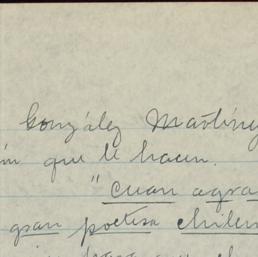 González Martíne
ín que le hacen.
" cuan agra
gran poetisa chilen